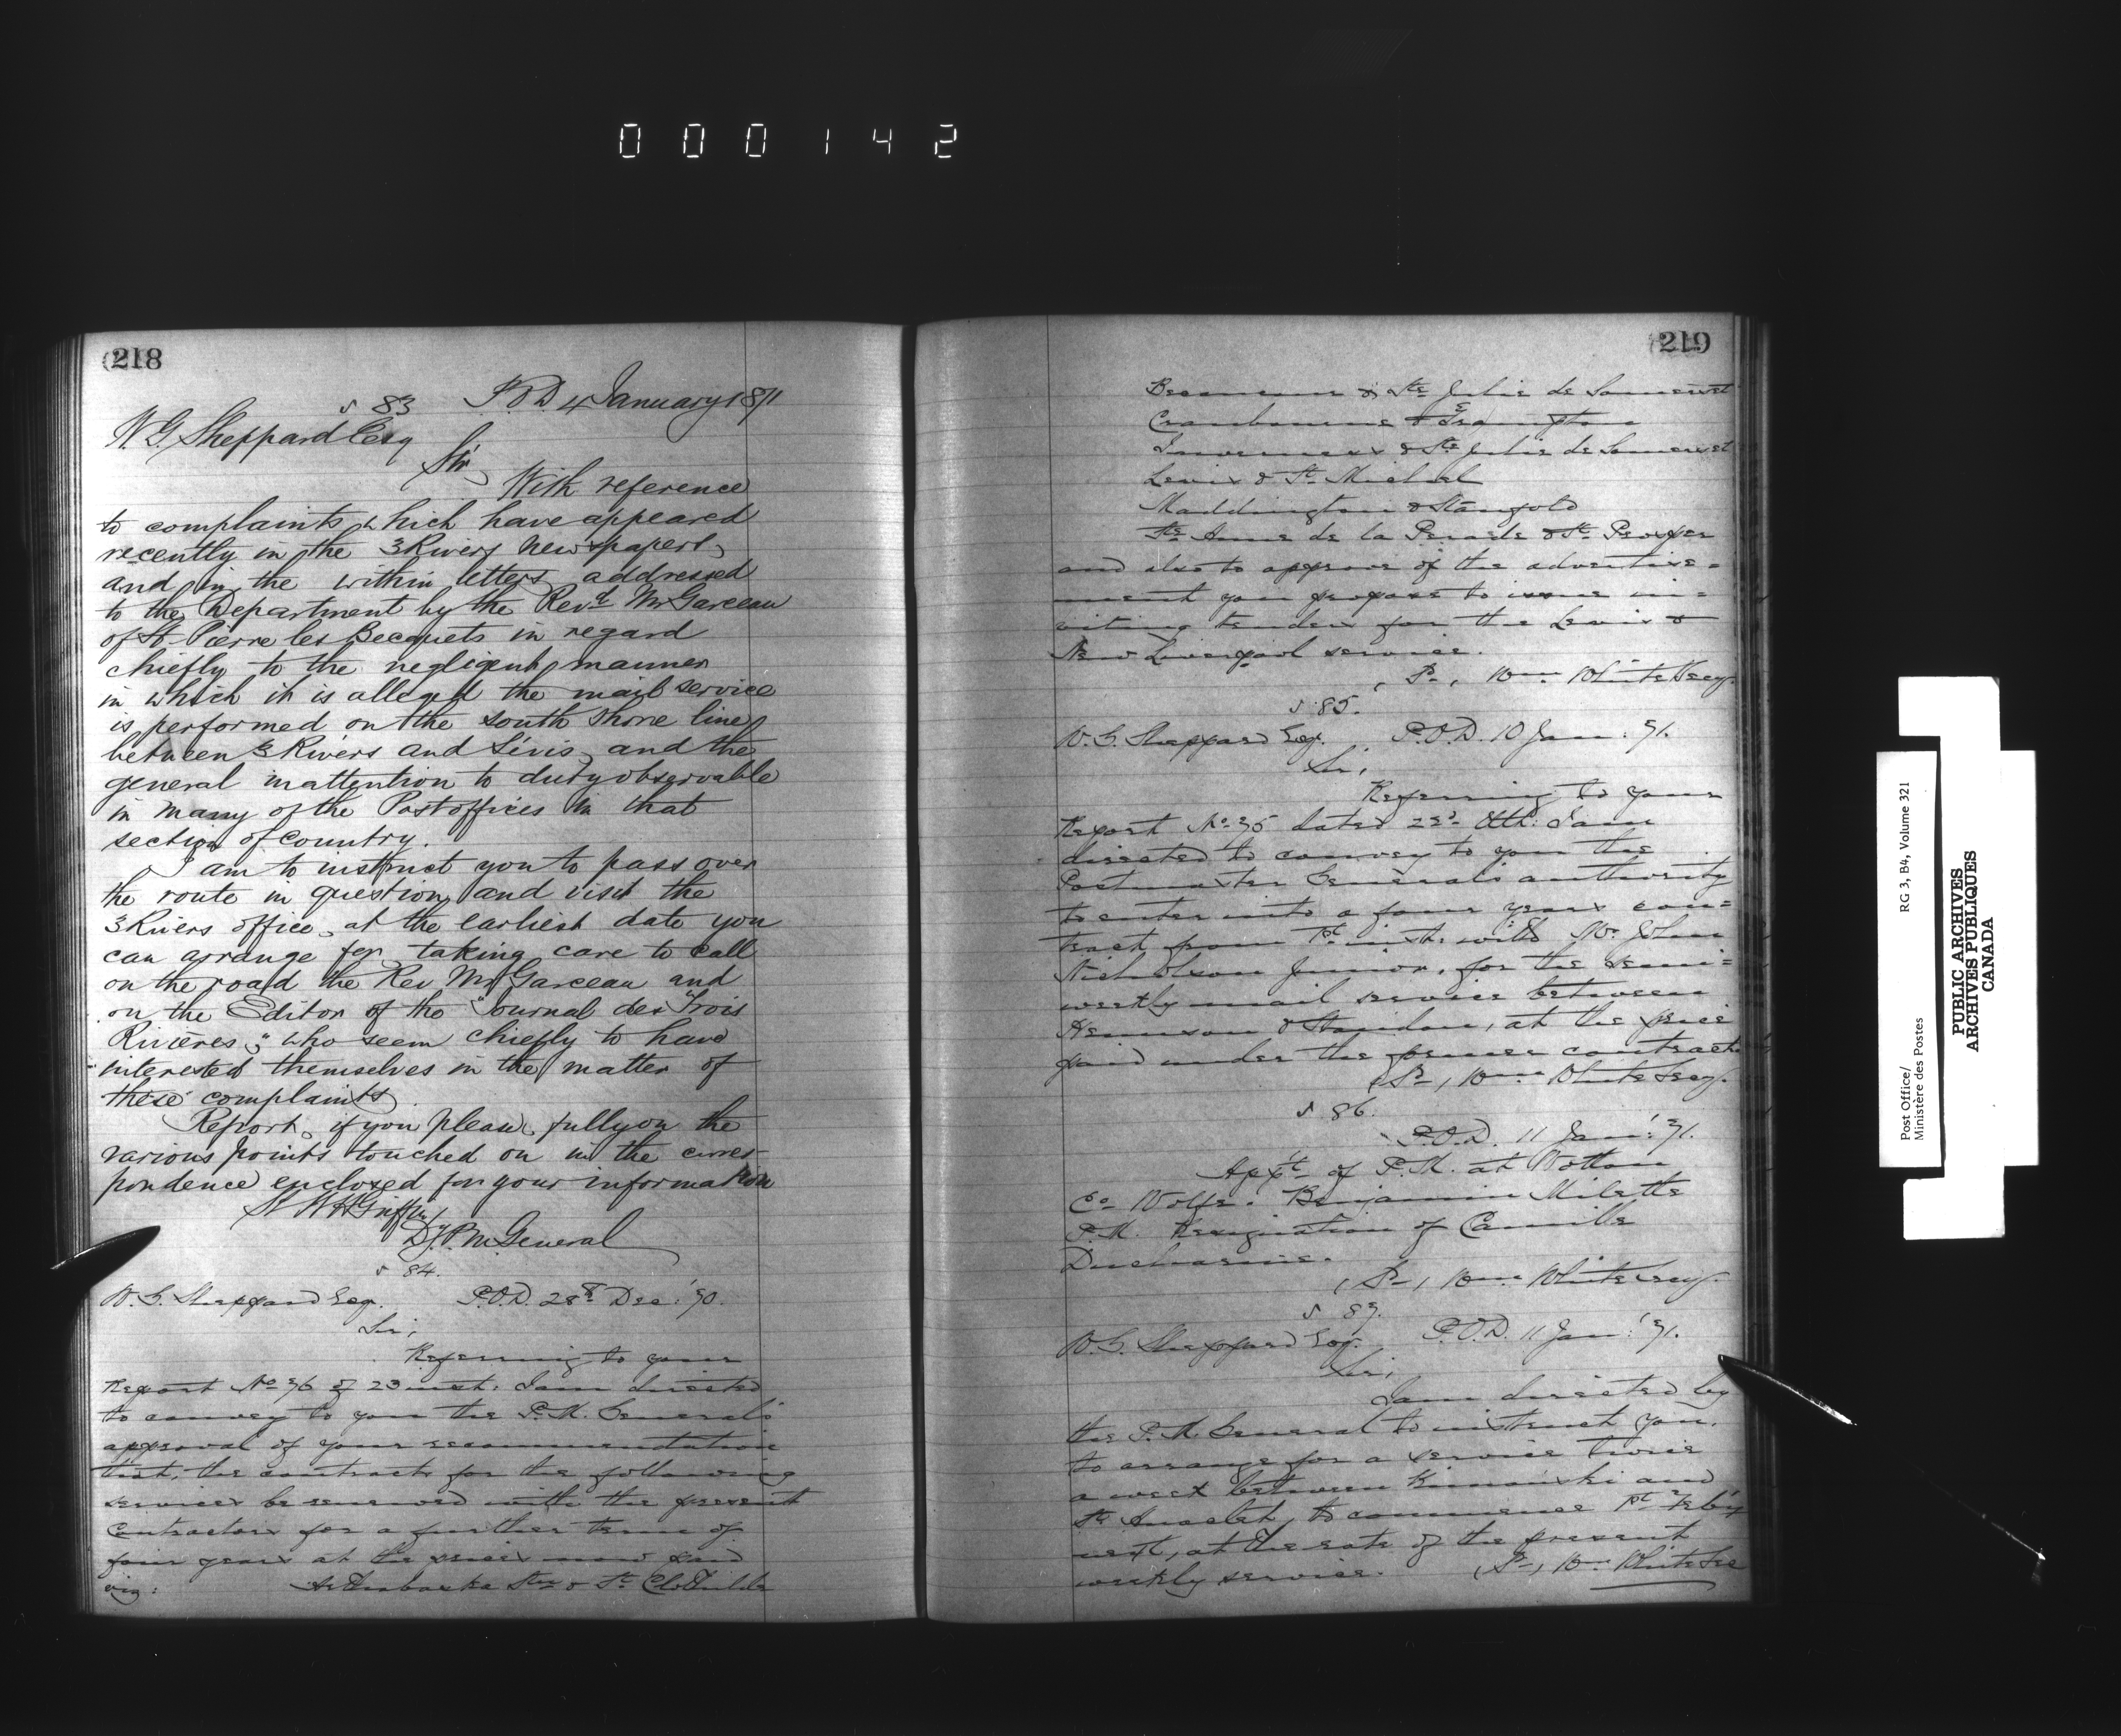 000142
218
S 83 P.O.D. 4 January 1871
W.G. Sheppard Esq
Sir,
With reference
to complaints which have appeared
recently in the 3 Rivers Newspapers,
and in the within letters addressed
to the Department by the Revd. Mr Garceau
of St Pierre les Becquets in regard
chiefly to the negligent manner
in which it is alleged the mail service
is performed on the south shore line
between 3 Rivers and Lévis, and the
general inattention to duty observable
in many of the Post offices in that
section of country.
I am to instruct you to pass over
the route in question, and visit the
3 Rivers office, at the earliest date you
can arrange for, taking care to call
on the road the Rev Mr Garceau and
on the Editor of the "Journal des Trois
Rivières," who seem chiefly to have
interested themselves in the matter of
these complaints.
Report, if you please, fully on the
various points touched on in the corres-
pondence enclosed for your information
W H Griffin
Dy. P.M. General
S 84.
W.G. Sheppard Esq. P.O.D. 28th Dec: '70.
Sir,
Referring to your
Report No 76 of 23 inst: I am directed
to convey to you the P.M. General's
approval of your recommendation
that, the contracts for the following
services be renewed with the present
Contractors for a further term of
four years at the prices now paid
viz: Arthabaska Stn & St Clothilde
219
Becancour & Ste Julie de Somerset
Cranbourne & E Frampton
Inverness & Ste Julie de Somerset
Levis & St Michael
Maddington & Stanfold
Ste Anne de la Perade & St Prosper
and also to approve of the advertise=
ment you propose to issue in=
viting tenders for the Levis &
New Liverpool service.
Wm. White Secy.
S 85.
W.G. Sheppard Esq. P.O.D. 10 Jan: '71.
Sir,
Referring to your
Report No 75 dated 23d Ult: I am
directed to convey to you the
Postmaster General's authority
to enter into a four years con=
tract from 1st inst: with Mr John
Nicholson Junior, for the semi=
weekly mail service between
Hemison & Standon, at the price
paid under the former contract
Wm. White Secy.
S 86.
P.O.D. 11 Jan: '71.
Appt of P.M. at Wotton
Co Wolfe. Benjamin Milette
P.M. Resignation of Camille
Ducharme.
Wm. White Secy.
S 87.
W.G. Sheppard Esq. P.O.D. 11 Jan: '71.
Sir,
I am directed by
the P.M. General to instruct you,
to arrange for a service twice
a week between Rimouski and
St Anaclet, to commence 1st Feby
next, at the rate of the present
weekly service. Wm. White Sec
Post Office/
Ministère des Postes
RG 3, B4, Volume 321
PUBLIC ARCHIVES
ARCHIVES PUBLIQUES
CANADA